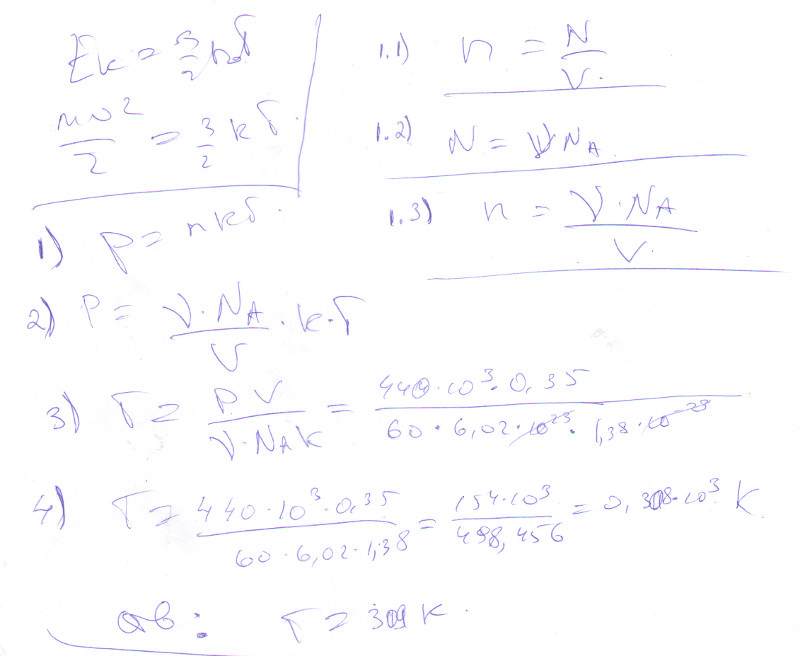 Eк = 3/2 kT
mv²/2 = 3/2 kT.
1) P = nkT.
1.1) n = N/V.
1.2) N = νN_A
1.3) n = ν·N_A/V.
2) P = ν·N_A/V · k·T
3) T = P·V/ν·N_A k = 440·10³·0,35/60·6,02·10²³·1,38·10⁻²³
4) T = 440·10³·0,35/60·6,02·1,38 = 154·10³/498,456 = 0,308·10³ K
Отв: T = 309 K.